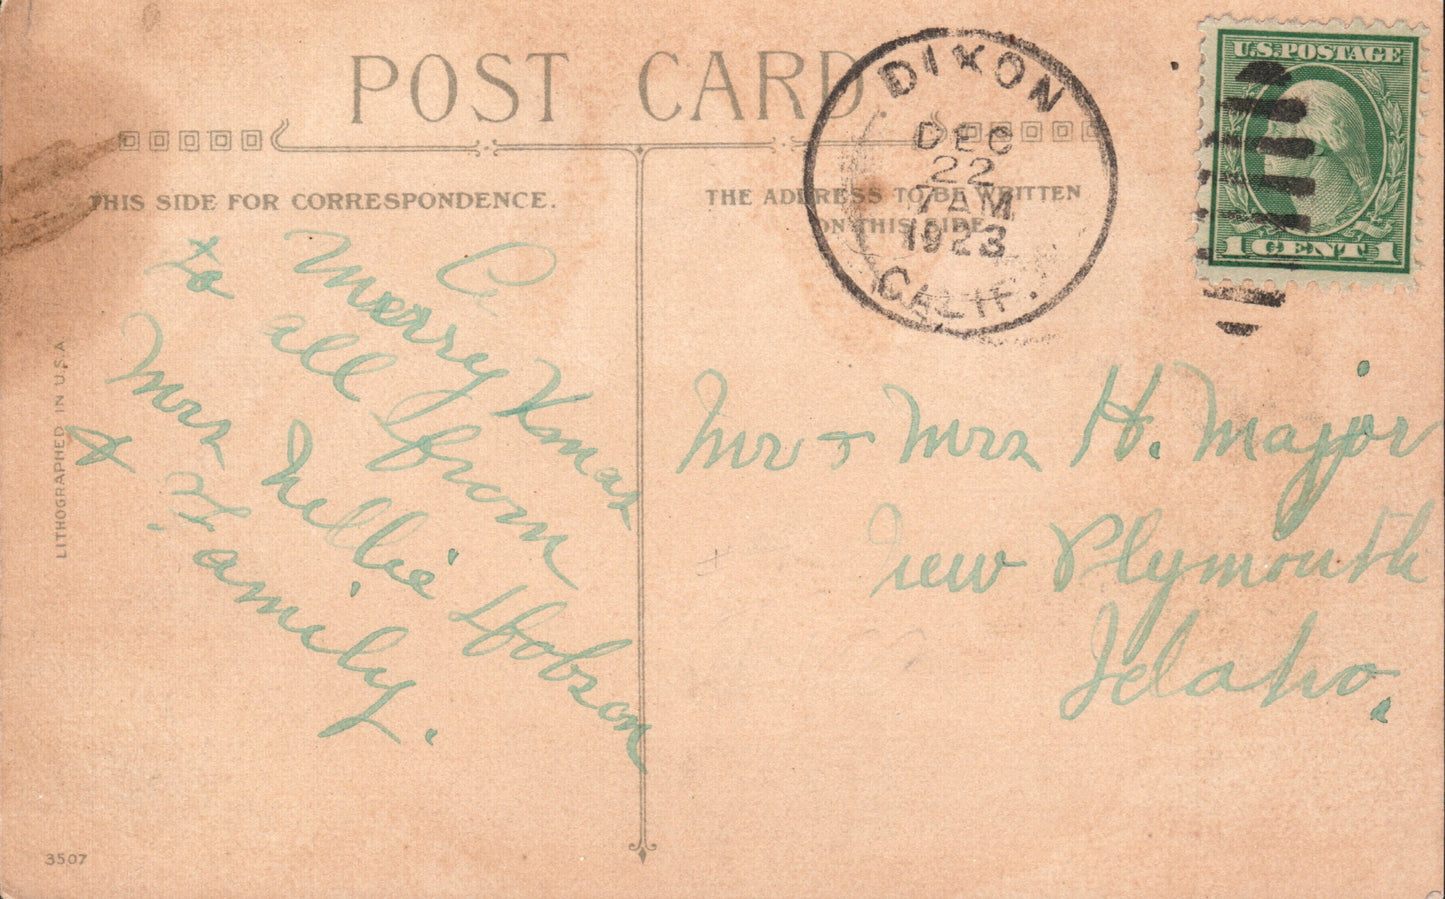 POST CARD
THIS SIDE FOR CORRESPONDENCE.
THE ADDRESS TO BE WRITTEN
ON THIS SIDE
DIXON
DEC
22
7 AM
1923
CALIF.
U.S. POSTAGE
1 CENT 1
A
Merry Xmas
to all from
Mrs Nellie Hobson
& Family.
Mr & Mrs H. Major
New Plymouth
Idaho.
LITHOGRAPHED IN U.S.A
3507